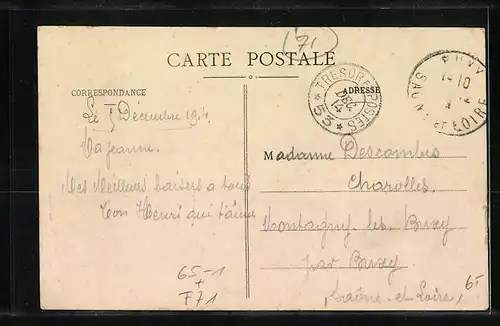 (71)
CARTE POSTALE
CORRESPONDANCE
ADRESSE
TRESOR ET POSTES
DEC
14
* 53 *
14-10
SAONE ET LOIRE
Le 1 Décembre 1914
Ma Jeanne.
Mes Meilleurs baisers à tous
Ton Henri qui t'aime
Madame Descombes
Charolles.
Montagny les Buxy
par Buxy
Saône-et-Loire,
65-1
+
F71
6-